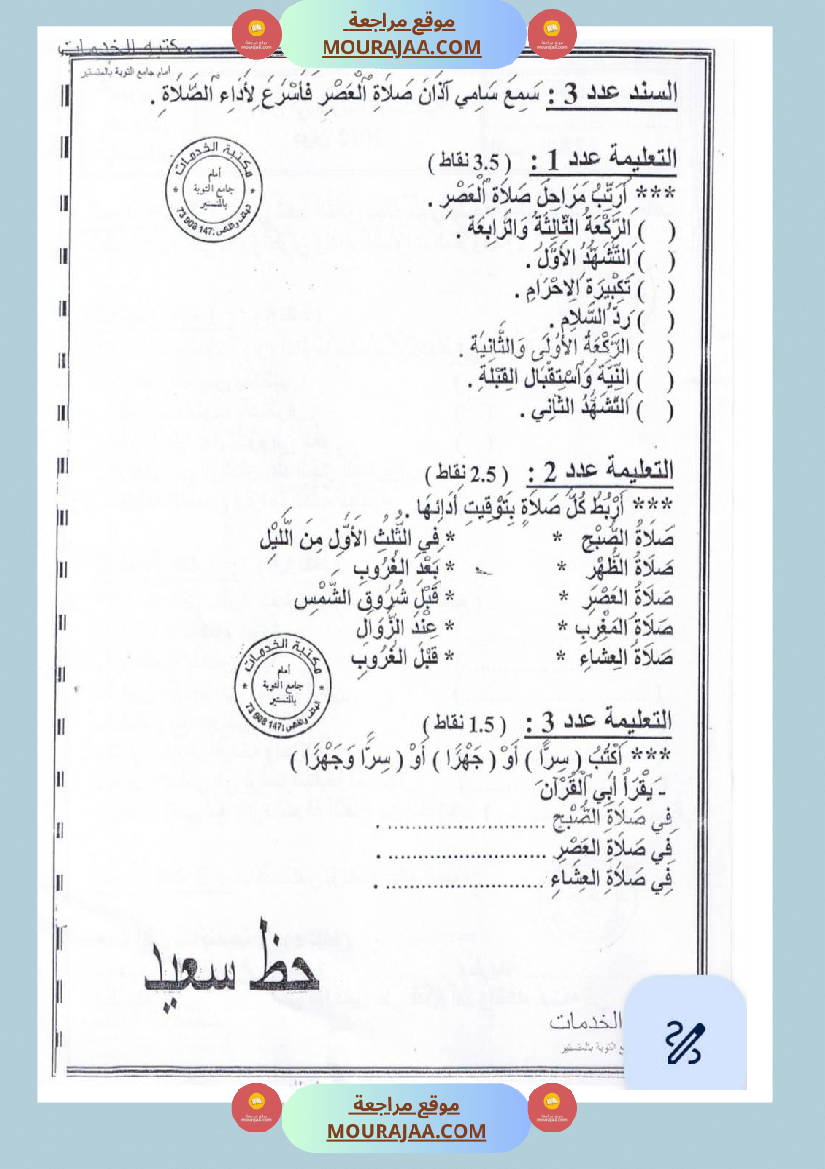 موقع مراجعة
MOURAJAA.COM
مكتبة الخدمات
أمام جامع التوبة بالمنستير
السند عدد 3 : سَمِعَ سَامِي آذَانَ صَلَاةِ ٱلْعَصْرِ فَأَسْرَعَ لِأَدَاءِ ٱلصَّلَاةِ .
التعليمة عدد 1 : ( 3.5 نقاط )
*** أُرَتِّبُ مَرَاحِلَ صَلَاةِ ٱلْعَصْرِ .
( ) الرَّكْعَةُ الثَّالِثَةُ وَالرَّابِعَةُ .
( ) التَّشَهُّدُ الأَوَّلُ .
( ) تَكْبِيرَةُ الإِحْرَامِ .
( ) رَدُّ السَّلَامِ .
( ) الرَّكْعَةُ الأُولَى وَالثَّانِيَةُ .
( ) النِّيَّةُ وَٱسْتِقْبَالُ القِبْلَةِ .
( ) التَّشَهُّدُ الثَّانِي .
مكتبة الخدمات
أمام
جامع التوبة
بالمنستير
الهاتف والفاكس :147 908 73
التعليمة عدد 2 : ( 2.5 نقاط )
*** أَرْبُطُ كُلَّ صَلَاةٍ بِتَوْقِيتِ أَدَائِهَا .
صَلَاةُ الصُّبْحِ * * فِي الثُّلُثِ الأَوَّلِ مِنَ اللَّيْلِ
صَلَاةُ الظُّهْرِ * * بَعْدَ الغُرُوبِ
صَلَاةُ العَصْرِ * * قَبْلَ شُرُوقِ الشَّمْسِ
صَلَاةُ المَغْرِبِ * * عِنْدَ الزَّوَالِ
صَلَاةُ العِشَاءِ * * قَبْلَ الغُرُوبِ
مكتبة الخدمات
أمام
جامع التوبة
بالمنستير
الهاتف والفاكس :147 908 73
التعليمة عدد 3 : ( 1.5 نقاط )
*** أَكْتُبُ ( سِرًّا ) أَوْ ( جَهْرًا ) أَوْ ( سِرًّا وَجَهْرًا )
ـ يَقْرَأُ أَبِي ٱلْقُرْآنَ
فِي صَلَاةِ الصُّبْحِ .......................... .
فِي صَلَاةِ العَصْرِ .......................... .
فِي صَلَاةِ العِشَاءِ .......................... .
حظ سعيد
الخدمات
التوبة بالمنستير
موقع مراجعة
MOURAJAA.COM